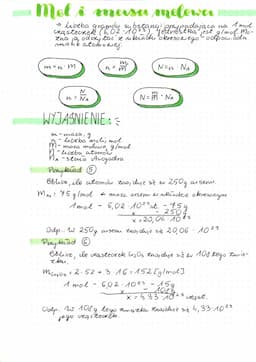 Mol i masa molowa
→ liczba gramów substancji przypadająca na 1 mol
cząsteczek (6,02·10²³). Jednostką jest g/mol. Mo-
żna ją odczytać z układu okresowego - odpowiada
masie atomowej.
m = n · M
n = m/M
N = n · Nₐ
n = N/Nₐ
N = m/M · Nₐ
WYJAŚNIENIE:
m - masa, g
n - liczba moli, mol
M - masa molowa, g/mol
N - liczba atomów
Nₐ - stała Avogadra
Przykład ⑤
Oblicz, ile atomów znajduje się w 250g arsenu.
1 mol - 6,02 · 10²³ at - 75g
x - 250g
x = 20,06 · 10²³
Odp. W 250g arsenu znajduje się 20,06 · 10²³
Przykład ⑥
Oblicz, ile cząsteczek Cr₂O₃ znajduje się w 108g tego zwią-
zku.
M Cr₂O₃ = 2·52 + 3·16 = 152 [g/mol]
1 mol - 6,02 · 10²³ -
x - 108g
x = 4,33 · 10²³ cząst.
Odp. W 108g tego związku znajduje się 4,33·10²³
jego cząsteczek.